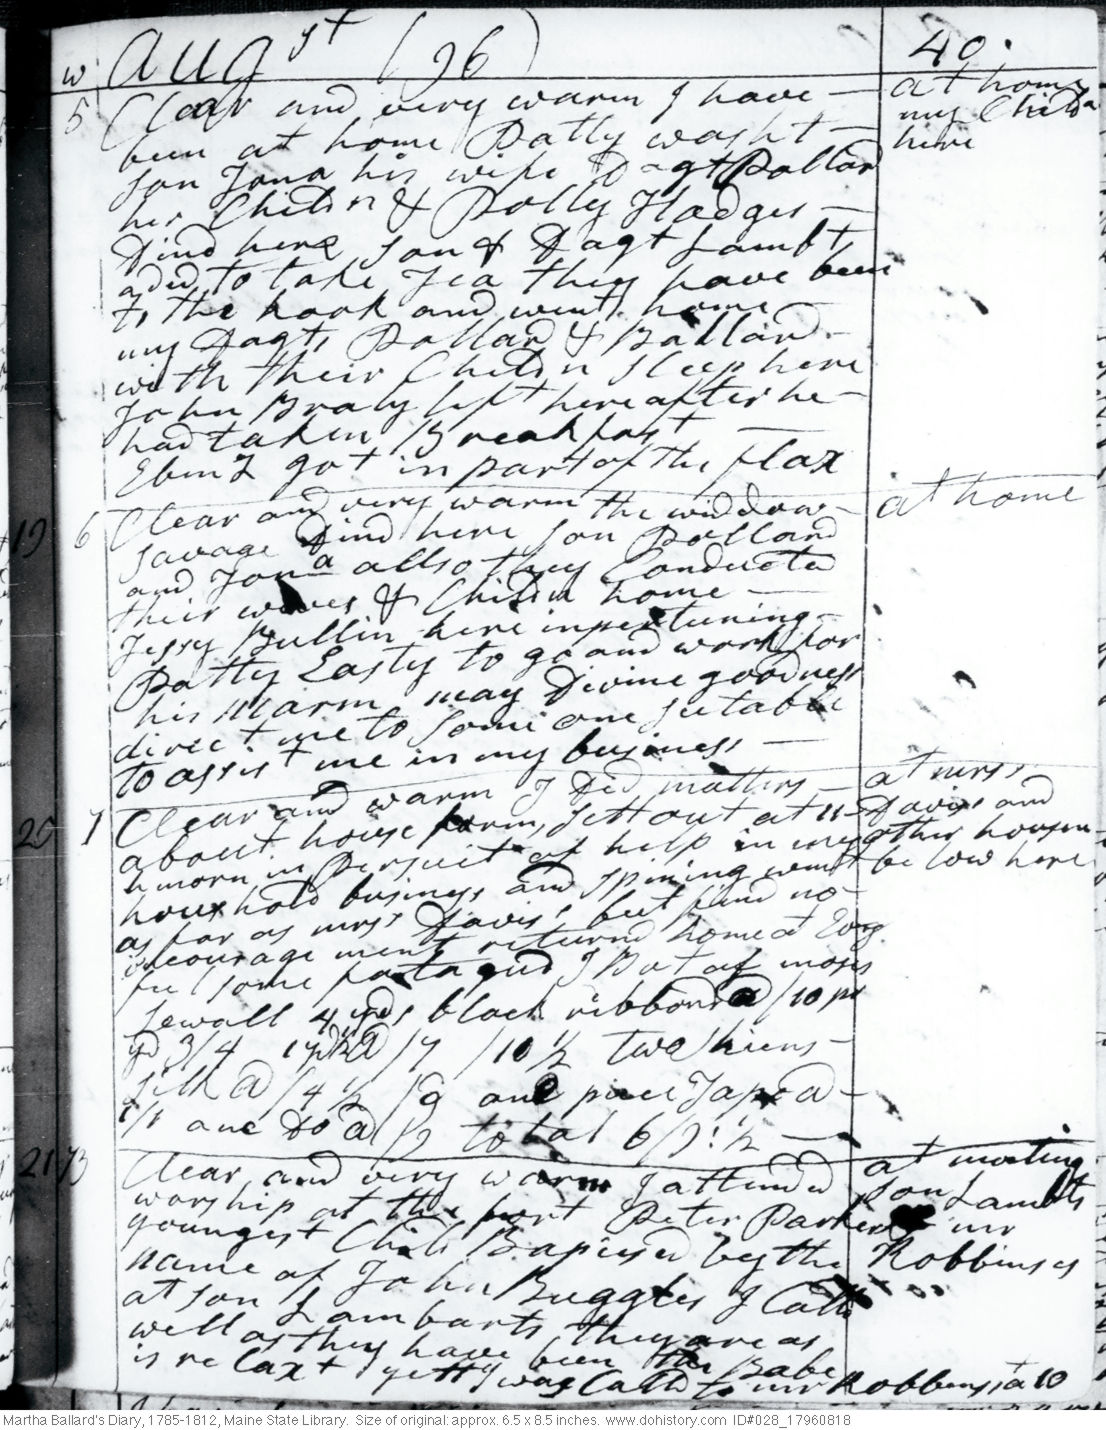 w Augst (96) 40.
5 Clear and very warm I have at home
been at home Patty washt my Childn
son Jona his wife Dagt Pollard here
her Childn & Polly Hodges
Dind here son & Dagt Lambt
aded to take Tea they have been
to the hook and went home
my Dagts Pollard & Ballard
with their Childn sleep here
John Braly left here after he
had taken Breakfast
Ebenz got in part of the flax
19 6 Clear and very warm the widdow at home
Savage Dind here son Pollard
and Jona allso they Conducted
their wives & Childn home
Jessy Bullin here
Patty Easty to go and work for
his Marm may Divine goodness
direct me to some one sutable
to assist me in my business
20 7 Clear and warm I Did matters at mrss
about house Sett out at 11 Daviss and
h morn in Persuit of help in my other housen
household business and spining went be low here
as far as mrss Davis's but find no
incouragement returnd home at Evng
feel some fatagud I Bot of moses
Sewall 4 yds black ribbond @ /10 pr
yd 3/4 1 yd ½ @ /7 /10 ½ two skiens
silk @ /4 ½ /9 one piece Tape @
1/1 one Do @ /2 total 6/2: ½
21 73 Clear and very warm I attended at meeting
worship at the port Peter Parkers son Lambts
youngest Child Bapised by the mr
name of John Ruggles I Calld Robbinses
at son Lambarts they are as
well as they have been the Babe
is relaxt yett I was Calld to mr Robbins, at 10
Martha Ballard's Diary, 1785-1812, Maine State Library. Size of original: approx. 6.5 x 8.5 inches. www.dohistory.com ID#028_17960818